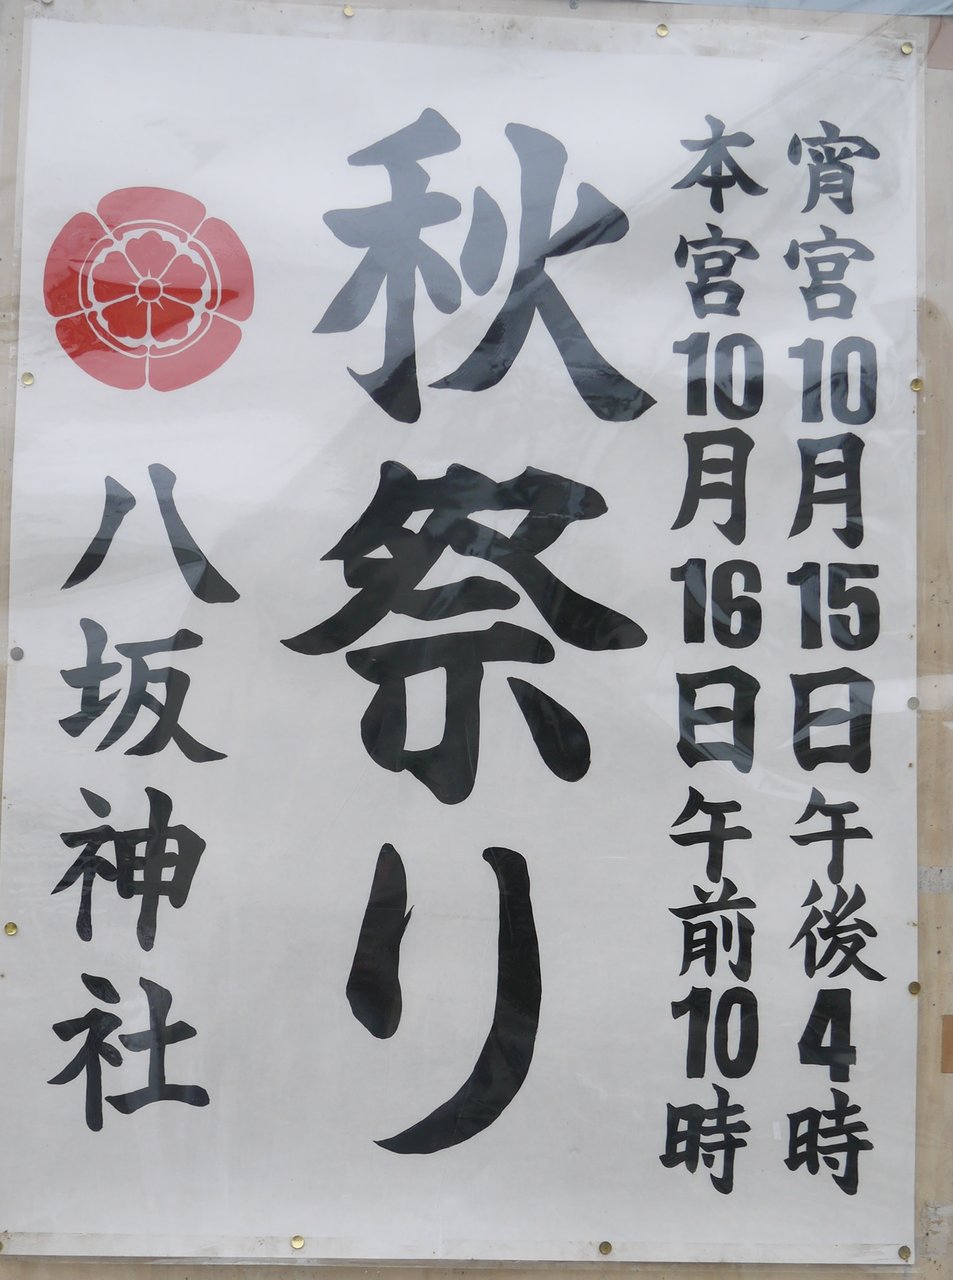 宵宮10月15日午後4時
本宮10月16日午前10時
秋祭り
八坂神社